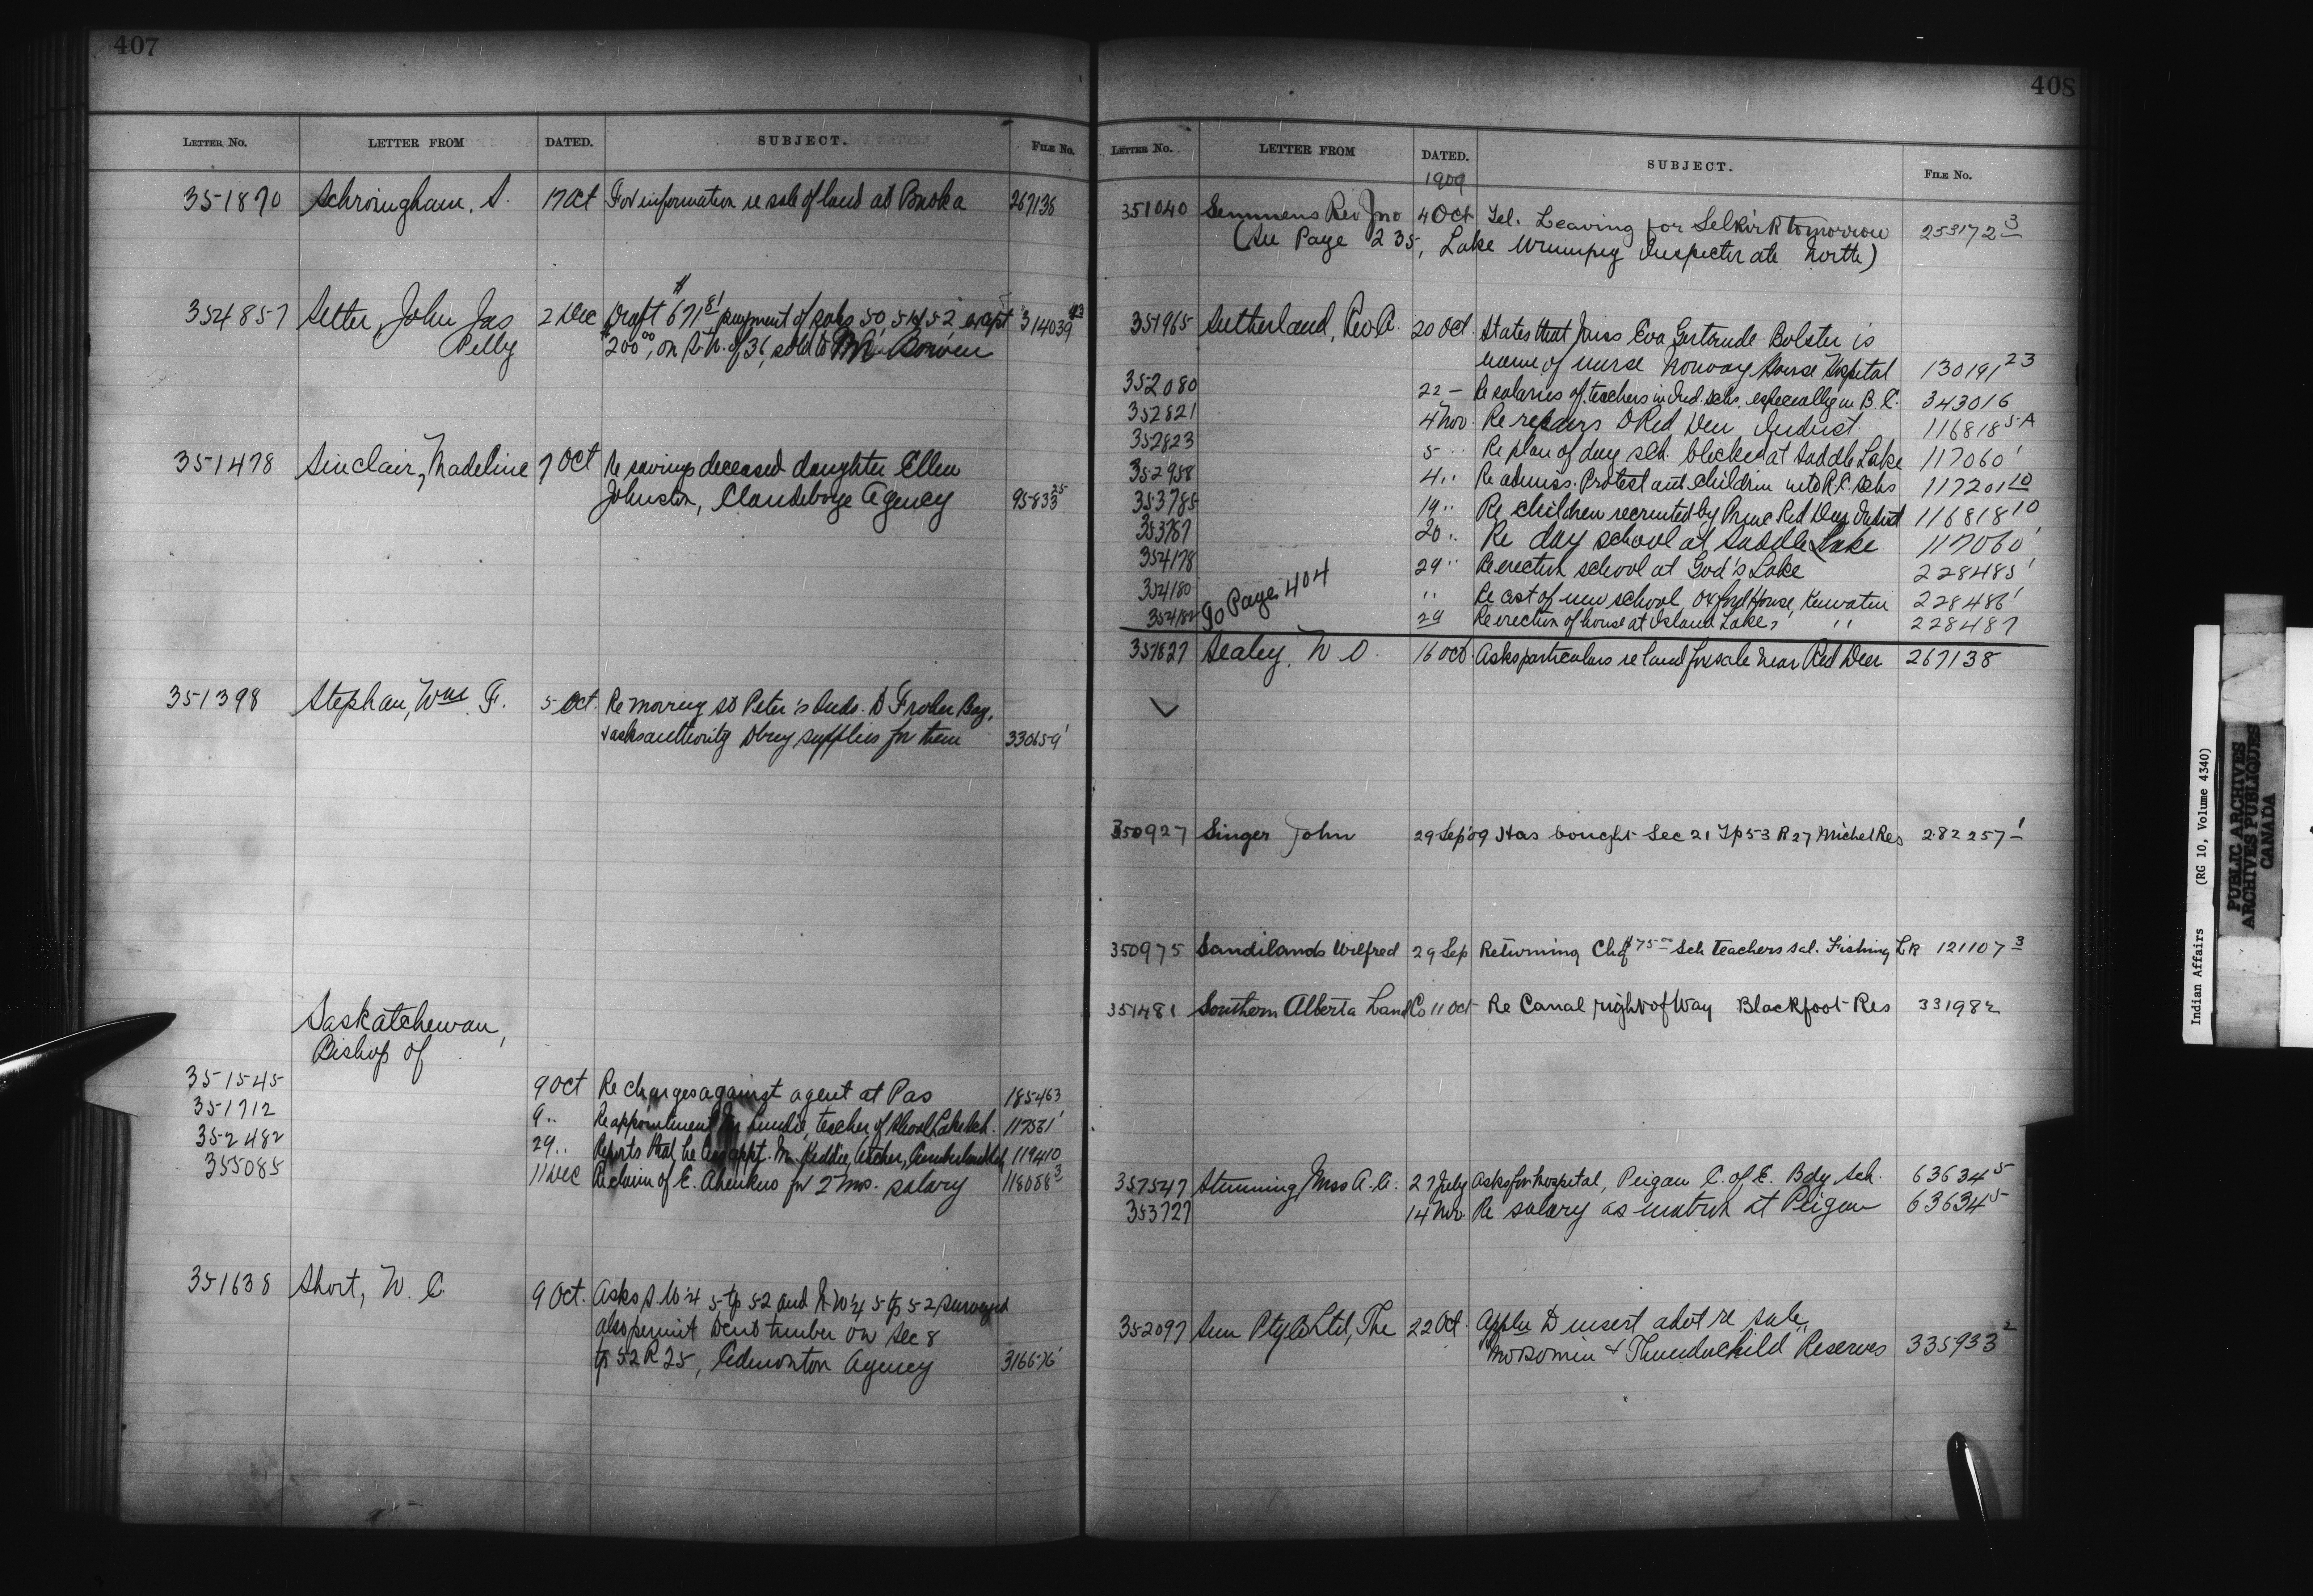 407
LETTER No. LETTER FROM DATED. SUBJECT. FILE No.
351870 Schroingham, S. 17 Oct For information re sale of land at Ponoka 267138
354857 Setter, John Jas 2 Dec Draft $671 81 payment of sales 50, 51 & 52 except 314039 93
Pelly $200 00, on of 36, sold to Bowen
351478 Sinclair, Madeline 7 Oct Re savings deceased daughter Ellen
Johnston, Clandeboye Agency 95833 25
351398 Stephan, Wm F. 5 Oct. Re moving St Peter's Inds. to Froher Bay,
& asks authority to buy supplies for them 330659 1
Saskatchewan,
Bishop of
351545 9 Oct Re charges against agent at Pas 185463
351712 9 " Re appointment teacher of Shoal Lake Sch. 117531 1
352482 29 " Reports that he has appt. Mr. Keddie, teacher, 119410
355085 11 Dec Re claim of E. Ahenkus for 2 mos. salary 118088 3
351638 Short, W. C. 9 Oct. Asks S.W¼ 5 tp 52 and N.W¼ 5 tp 52 surveyed
also permit to cut timber on Sec 8
tp 52 R 25, Edmonton Agency 316676 1
408
LETTER No. LETTER FROM DATED. SUBJECT. FILE No.
1909
351040 Semmens Rev Jno 4 Oct Tel. Leaving for Selkirk tomorrow 253172 3
(See Page 235, Lake Winnipeg Inspectorate North)
351965 Sutherland, Rev A. 20 Oct. States that Miss Eva Gertrude Bolster is
name of nurse Norway House Hospital 130191 23
352080 22 - Re salaries of teachers in Ind. Schs. especially in B.C. 343016
352821 4 Nov. Re repairs to Red Deer Indust. 116818 5-A
352823 5 " Re plan of day sch. blocked at Saddle Lake 117060 1
352958 4 " Re admiss. Protestant children into R.C. Schs 117201 10
353785 19 " Re children recruited by Princ Red Deer Indust 116818 10
353787 20 " Re day school at Saddle Lake 117060 1
354178 29 " Re erection school at God's Lake 228485 1
354180 " Re cost of new school, Oxford House, Keewatin 228486 1
354182 Go Page 404 29 Re erection of house at Island Lake, " 228487
351827 Sealey, W. O. 16 Oct. Asks particulars re land for sale near Red Deer 267138
350927 Singer John 29 Sep '09 Has bought Sec 21 Tp 53 R 27 Michel Res 282257 1
350975 Sandilands Wilfred 29 Sep Returning Chq $75 00 Sch teachers sal. Fishing Lk 121107 3
351481 Southern Alberta Land Co 11 Oct Re Canal right of Way Blackfoot Res 331982
357547 Stunning, Miss A. A. 27 July Asks for hospital, Peigan C. of E. Bdg Sch. 63634 5
353727 14 Nov. Re salary as matron at Peigan 63634 5
352097 Sun Ptg Co Ltd, The 22 Oct. Appln to insert advt re sale
Moosomin & Thunderchild Reserves 335933 2
Indian Affairs (RG 10, Volume 4340)
PUBLIC ARCHIVES
ARCHIVES PUBLIQUES
CANADA